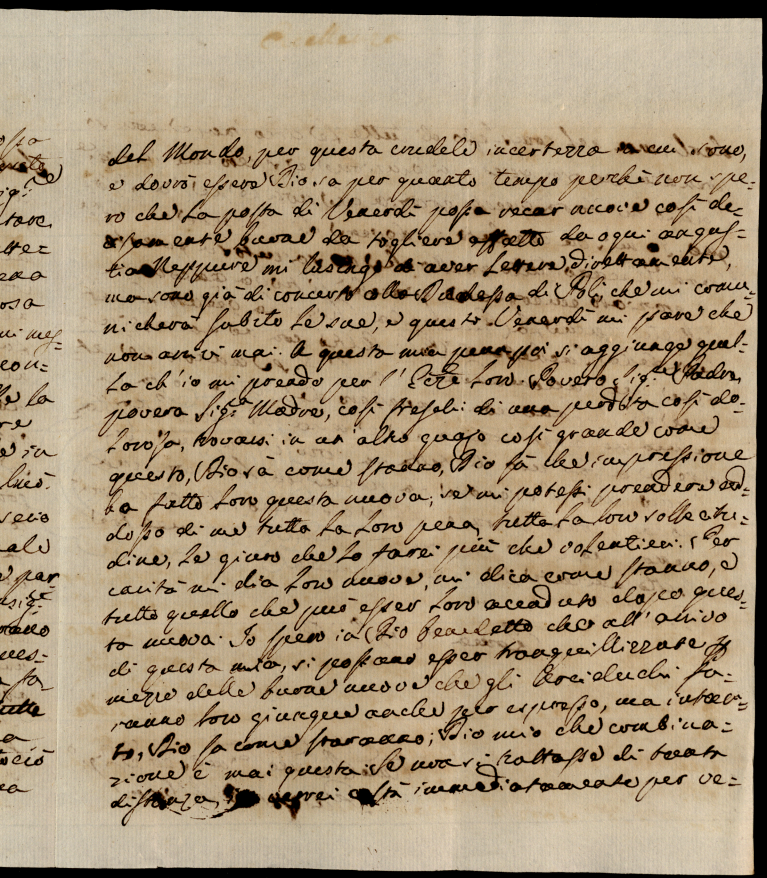 osta
sig:
tare
atte=
ena
osa
ni mes=
con=
lle la
re
e in
luci.
serio
ale
e par
ues=
a
a
tociò
ea
del Mondo, per questa crudele incertezza in cui sono,
e dovrò essere Dio sa per quanto tempo perchè non spe=
ro che la posta di Venerdi possa recar nuove così de=
cisamente buone da togliere affatto da ogni angus=
tia. Neppure mi lusingo di aver Lettere direttamente,
ma sono già di concerto colla Badessa di che mi comu=
nicherà subito le sue, e questo Venerdi mi pare che
non arrivi mai. A questa mia pena poi si aggiunge quel=
la ch'io mi prendo per l' Ecc:ze Loro. Povero Sig:r Padre,
povera Sig:a Madre, così freschi di una perdita così do=
lorosa, trovarsi in un altro guajo così grande come
questo, Dio sà come stanno, Dio sà che impressione
ha fatto loro questa nuova; se mi potessi prendere ad=
dosso di me tutta la loro pena, tutta la loro sollecitu=
dine, le giuro che lo farei più che volentieri. Per
carità mi dia loro nuove, mi dica come stanno, e
tutto quello che può esser loro accaduto dopo ques=
ta nuova. Io spero in Dio benedetto che all'arrivo
di questa mia, si possano esser tranquillizzate p
mezzo delle buone nuove che gli Arciduchi fa=
ranno loro giungere anche per espresso, ma intan=
to, Dio sa come staranno; Dio mio che combina=
zione è mai questa. Se non si trattasse di tanta
distanza, verrei costà immediatamente per ve=